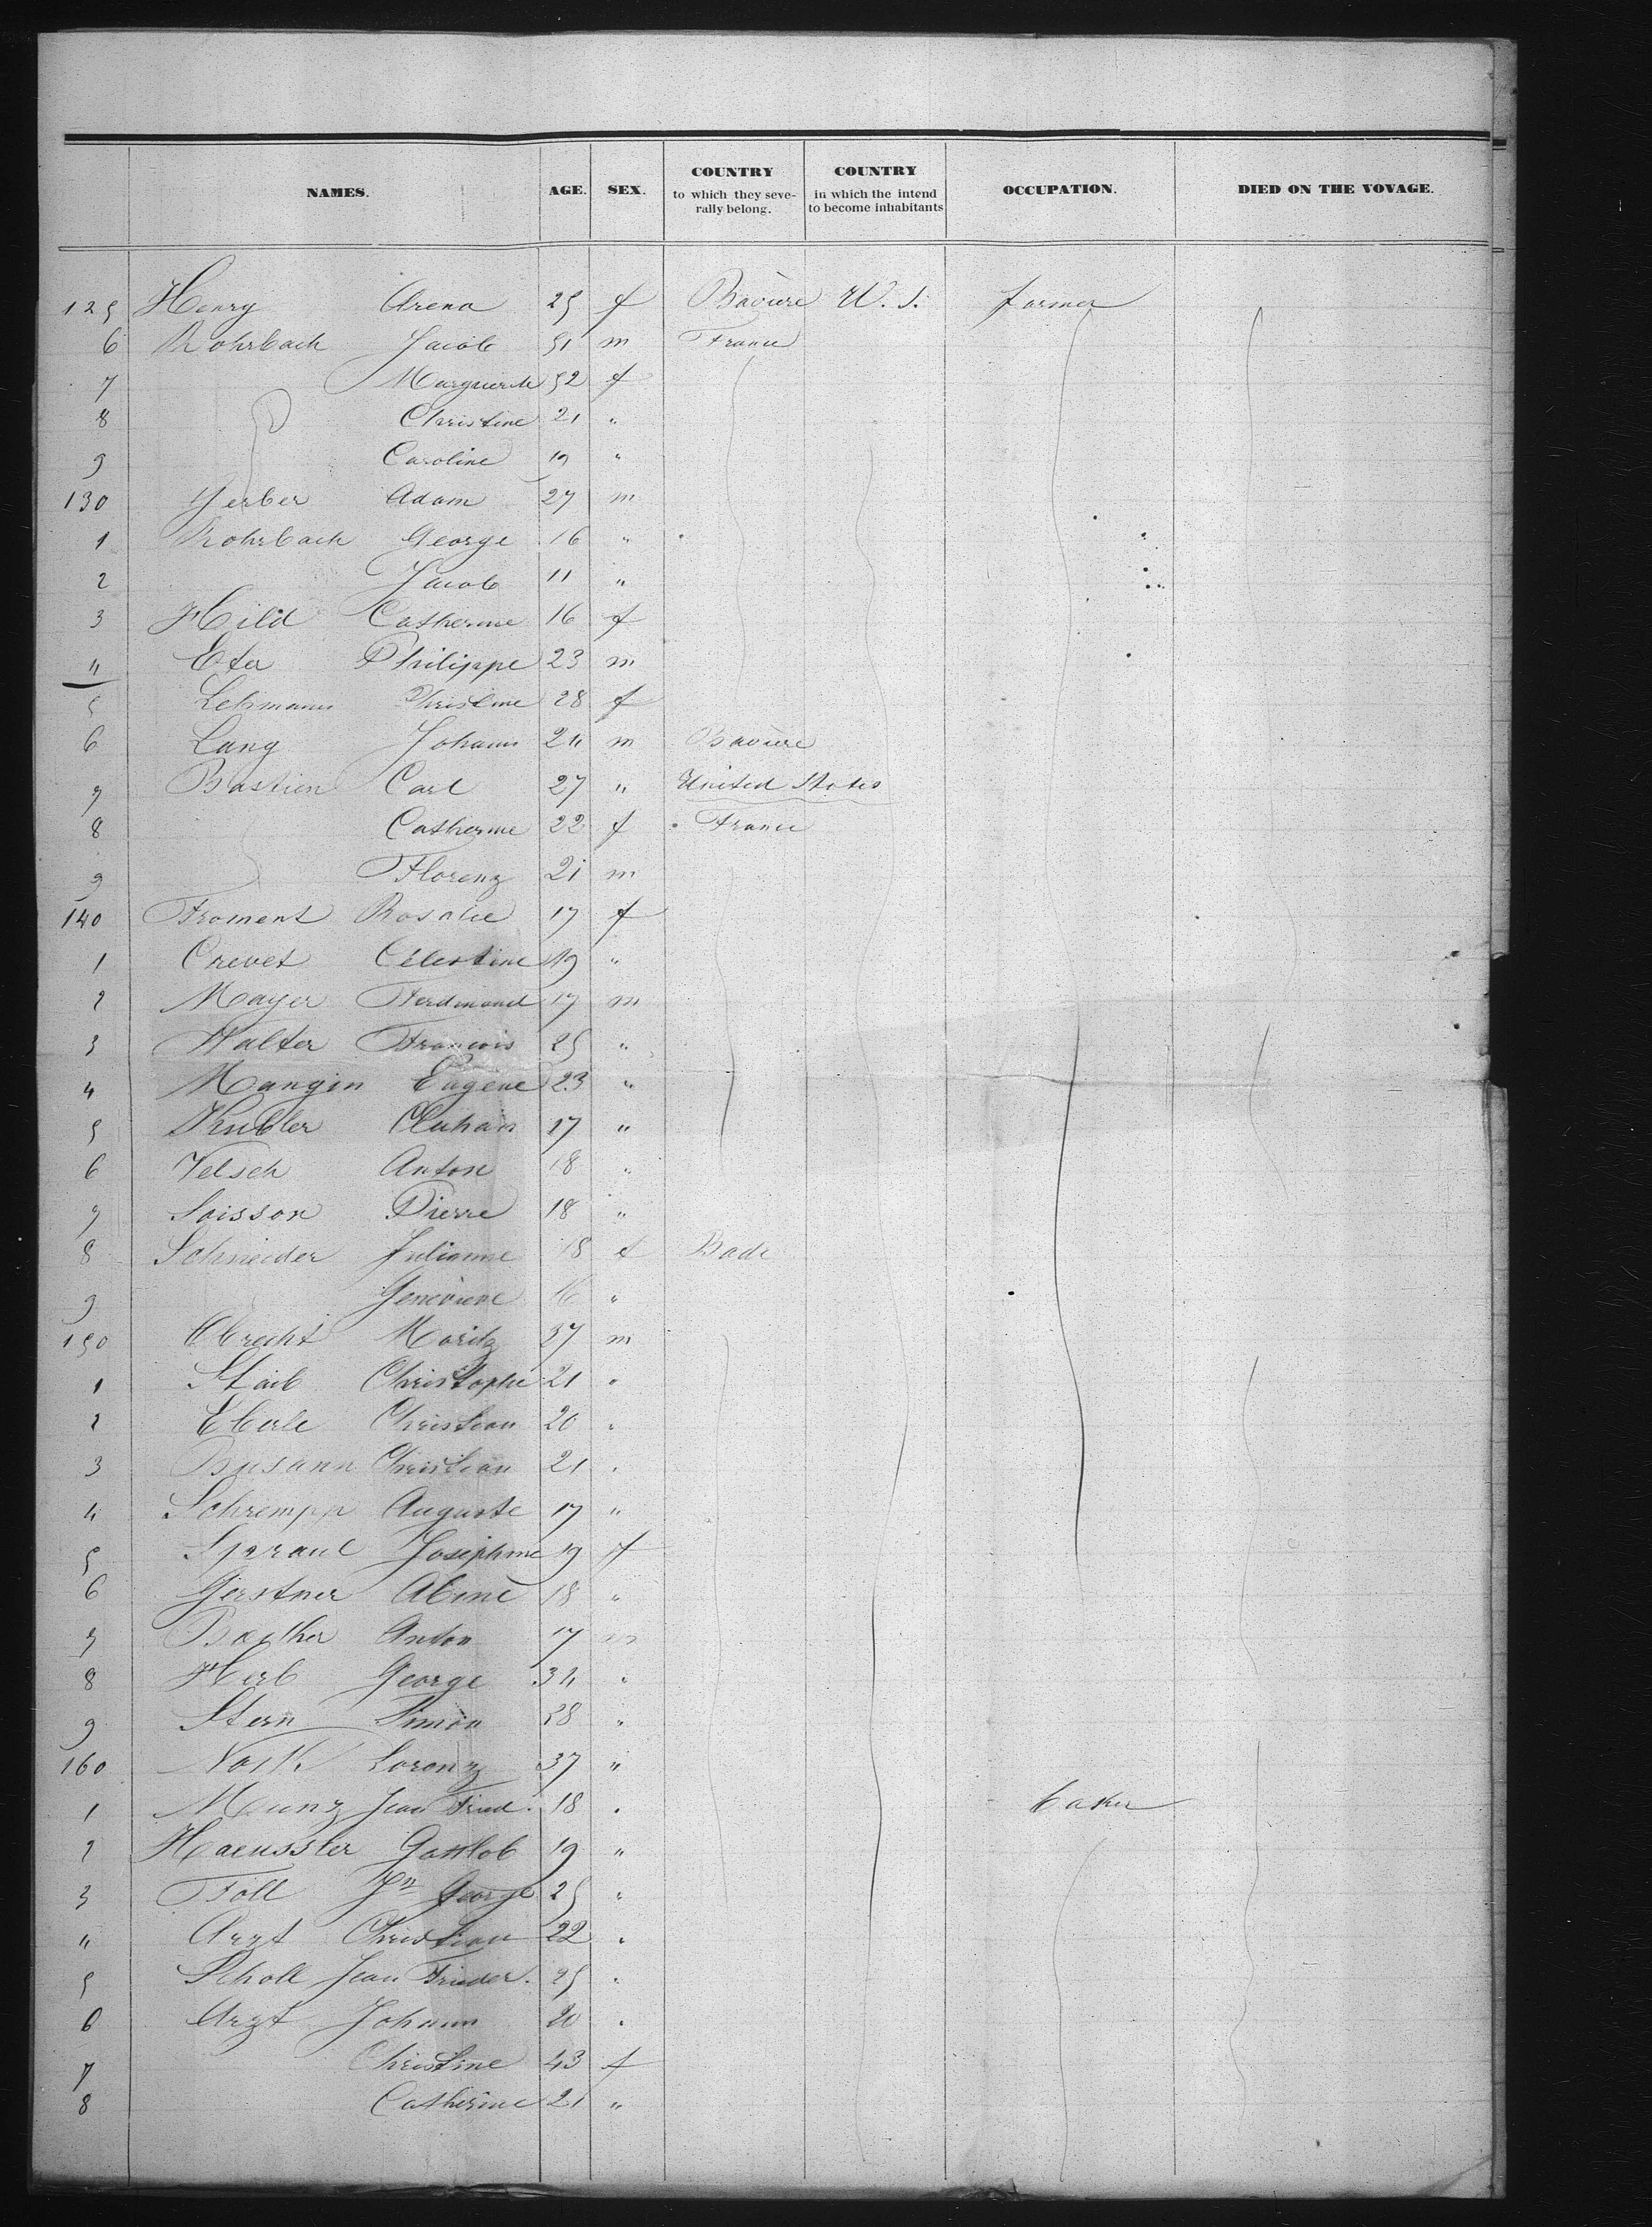 NAMES. AGE. SEX. COUNTRY to which they seve- rally belong. COUNTRY in which the intend to become inhabitants OCCUPATION. DIED ON THE VOYAGE.
125 Henry Arena 25 f Bavière U. S. farmer
6 Rohrbach Jacob 51 m France
7 Marguerite 52 f
8 Christine 21 "
9 Caroline 19 "
130 Yerber Adam 27 m
1 Rohrbach George 16 "
2 Jacob 11 "
3 Hild Catherine 16 f
4 Eta Philippe 23 m
5 Lehmann Christine 28 f
6 Lang Johann 24 m Bavière
7 Bastien Carl 27 " United States
8 Catherine 22 f France
9 Florenz 21 m
140 Froment Rosalie 17 f
1 Crevet Célestine 19 "
2 Mayer Ferdinand 17 m
3 Walter Francois 25 "
4 Mangin Eugene 23 "
5 Kubler 17 "
6 Velsch Anton 18 "
7 Soisson Pierre 18 "
8 Schneider Julianne 18 f Bade
9 Genevieve 16 "
150 Obrecht Moritz 37 m
1 Staib Christophe 21 "
2 Eberle Christian 20 "
3 Busann Christian 21 "
4 Schrempp Auguste 17 "
5 Spraul Josephine 19 f
6 Gerstner 18 "
7 Anton 17 m
8 Herb George 34 "
9 Stern Simon 28 "
160 Lorenz 37 "
1 Munz Jean Fried. 18 " baker
2 Haeussler Gottlob 19 "
3 Föll Jn George 25 "
4 Arzt Christian 22 "
5 Scholl Jean Frieder. 25 "
6 Arzt Johann 20 "
7 Christine 43 f
8 Catherine 21 "